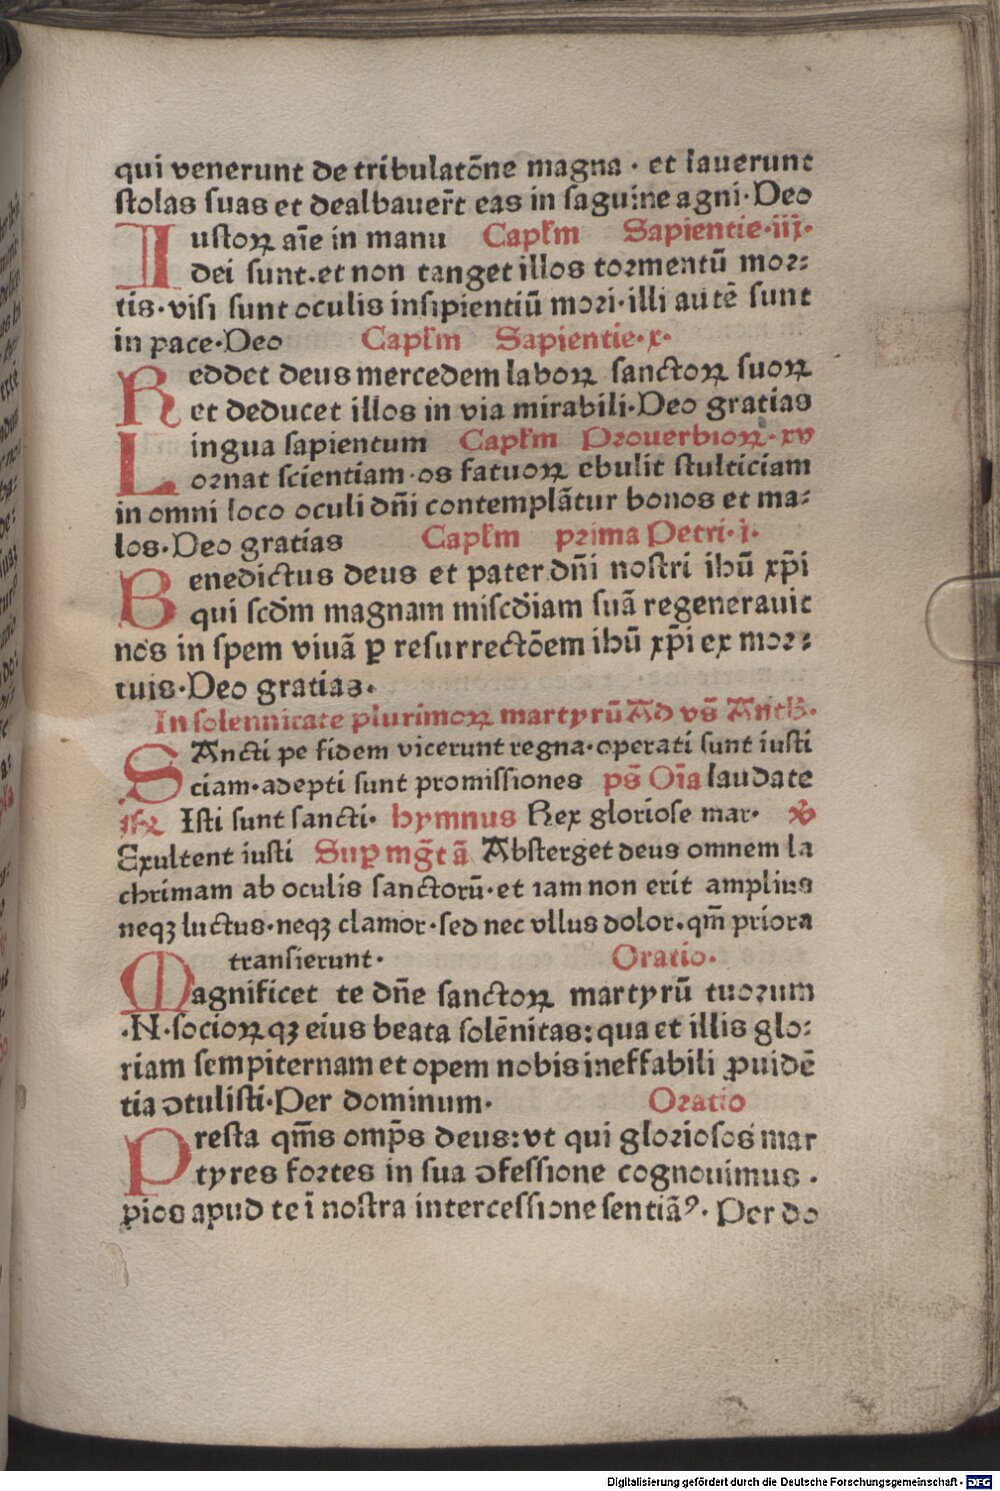 qui venerunt de tribulatōne magna · et lauerunt
stolas suas et dealbauer̃t eas in saguine agni · Deo
Iustoꝝ aīe in manu Capłm Sapientie · iij ·
dei sunt · et non tanget illos tormentū mor⸗
tis · visi sunt oculis insipientiū mori · illi autē sunt
in pace · Deo Capłm Sapientie · x ·
Reddet deus mercedem laboꝝ sanctoꝝ suoꝝ
et deducet illos in via mirabili · Deo gratias
Lingua sapientum Capłm Prouerbioꝝ · xv
ornat scientiam · os fatuoꝝ ebulit stulticiam
in omni loco oculi dn̄i contemplātur bonos et ma⸗
los · Deo gratias Capłm prima Petri · i ·
Benedictus deus et pater dn̄i nostri ihū xp̄i
qui scd̄m magnam miscd̄iam suā regenerauit
nos in spem viuā ꝑ resurrectōem ihū xp̄i ex mor⸗
tuis · Deo gratias ·
In solennitate plurimoꝝ martyrū Ad vs̄ Anth̄ ·
SAncti pe fidem vicerunt regna · operati sunt iusti
ciam · adepti sunt promissiones ps̄ Oīa laudate
Isti sunt sancti · hymnus Rex gloriose mar ·
Exultent iusti Suꝑ mḡt ā Absterget deus omnem la
chrimam ab oculis sanctorū · et iam non erit amplius
neqꝫ luctus · neqꝫ clamor · sed nec vllus dolor · qm̄ priora
transierunt · Oratio ·
Magnificet te dn̄e sanctoꝝ martyrū tuorum
· N · socioꝝqꝫ eius beata solēnitas : qua et illis glo⸗
riam sempiternam et opem nobis ineffabili ꝓuidē
tia ↄtulisti · Per dominum · Oratio
Presta qm̄s omp̄s deus : vt qui gloriosos mar
tyres fortes in sua ↄfessione cognouimus ·
pios apud te ī nostra intercessione sentiāꝰ · Per do
Digitalisierung gefördert durch die Deutsche Forschungsgemeinschaft - DFG